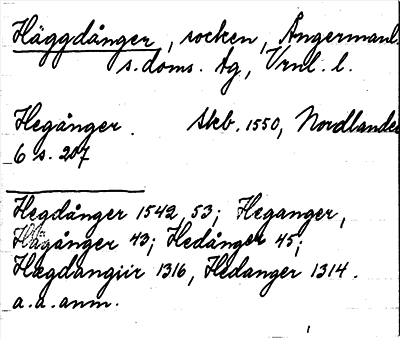 Häggdånger, socken, Ångermanl.
s. doms. tg, Vrnl. l.
Hegånger. Skb. 1550, Nordlander
6 s. 207
Hegdånger 1542, 53; Heganger,
Hägånger 43; Hedånger 45;
Hægdangiir 1316, Hedanger 1314.
a. a. anm.